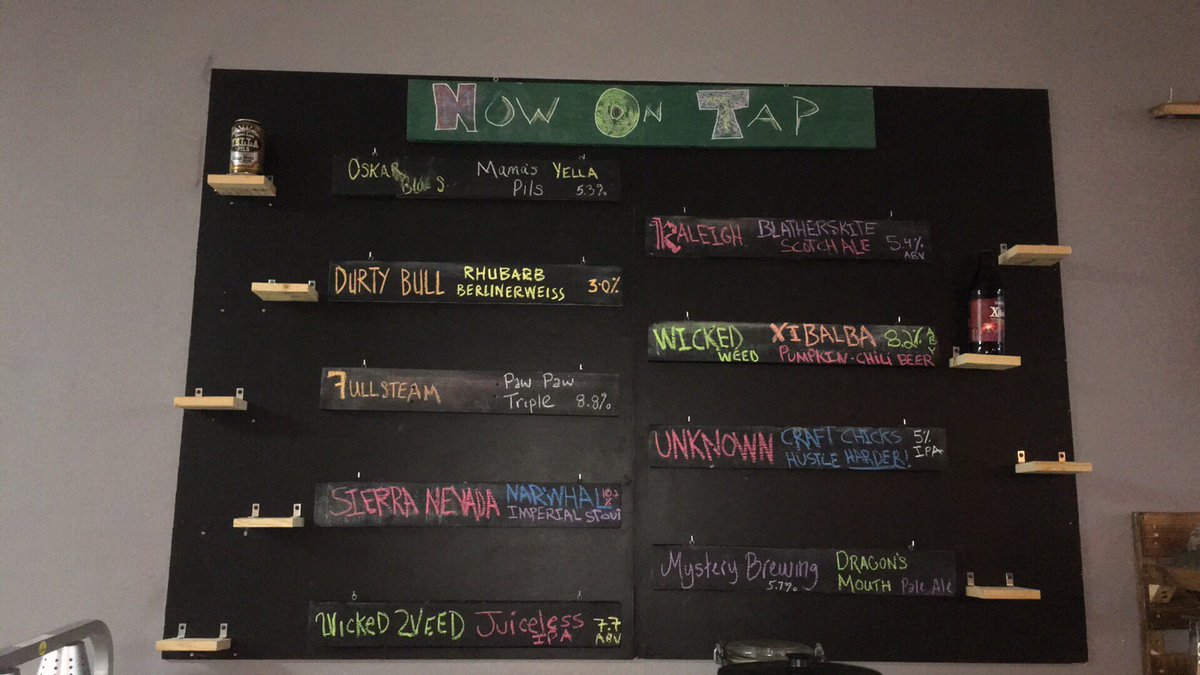 NOW ON TAP
OSKAR Mama's YELLA
Pils 5.3%
DURTY BULL RHUBARB
BERLINERWEISS 3.0%
FULLSTEAM Paw Paw
Triple 8.8%
SIERRA NEVADA NARWHAL
IMPERIAL STOUT
WICKED WEED Juiceless
IPA 7.7
ABV
RALEIGH BLATHERSKITE
SCOTCH ALE 5.4%
ABV
WICKED XIBALBA 8.2% ABV
WEED PUMPKIN-CHILI BEER
UNKNOWN CRAFT CHICKS 5%
HUSTLE HARDER! IPA
Mystery Brewing DRAGON'S
5.7% MOUTH Pale Ale